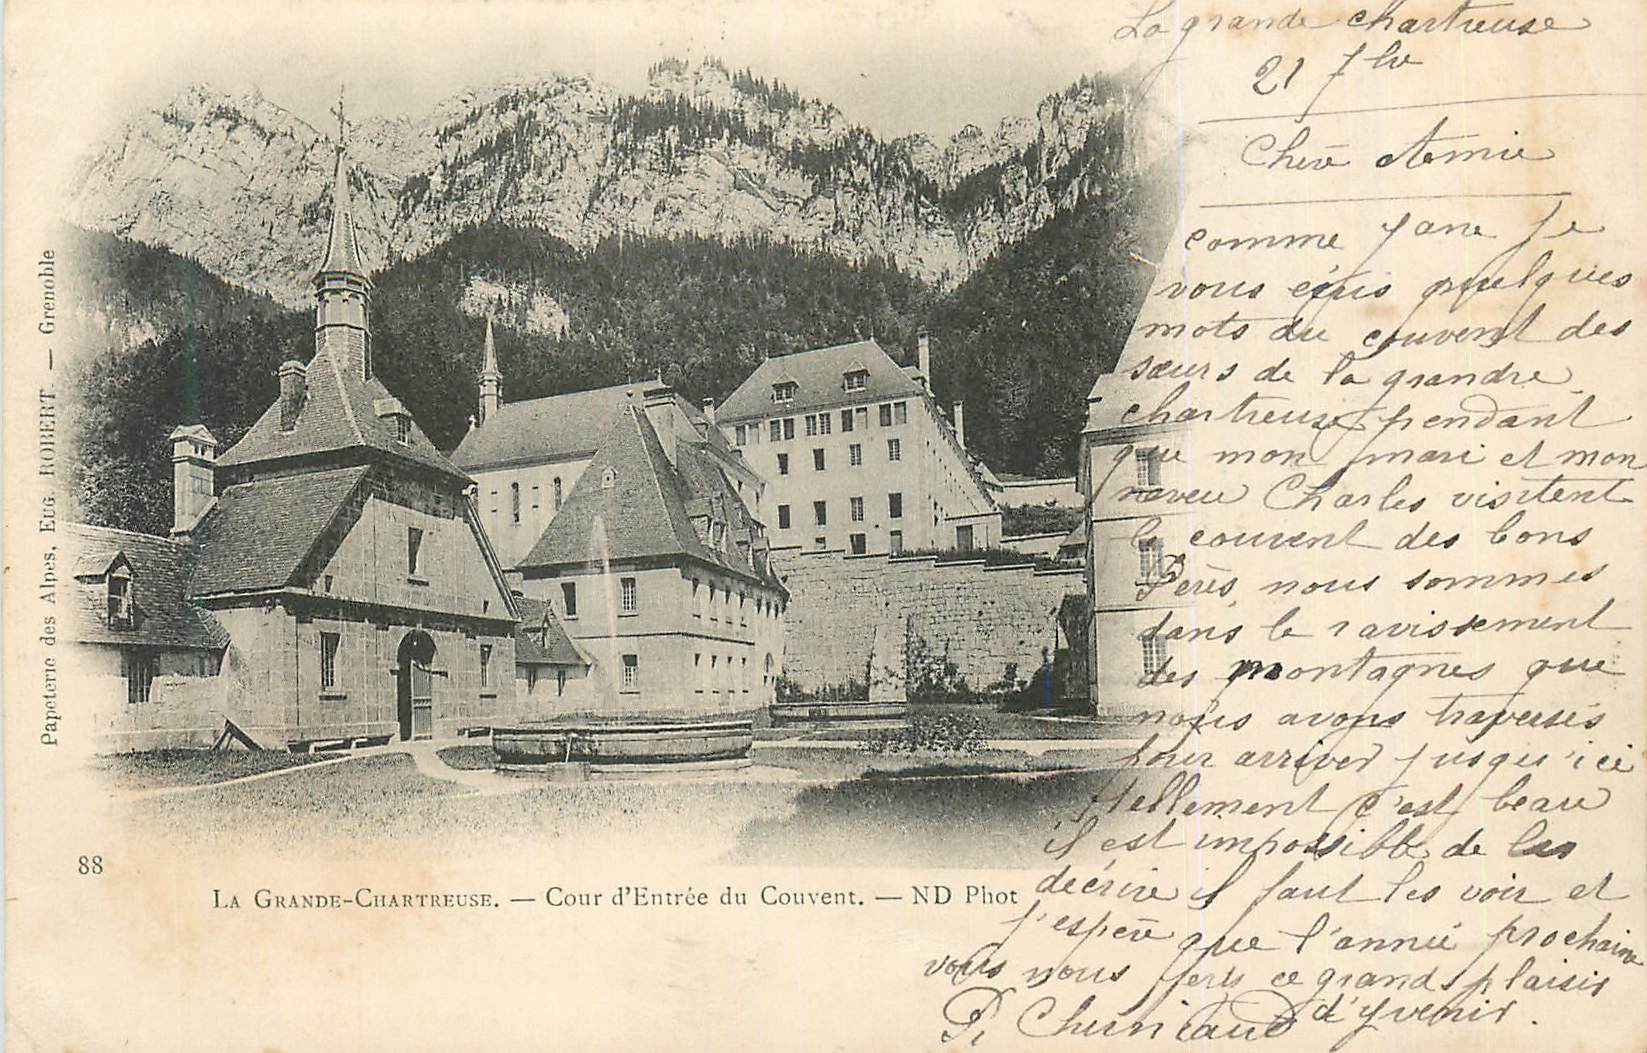 La grande chartreuse
21 7bre
Chère Amie
comme Jane je
vous écris quelques
mots du couvent des
sœurs de la grande
chartreuse pendant
que mon mari et mon
neveu Charles visitent
le couvent des bons
Pères nous sommes
dans le ravissement
des montagnes que
nous avons traversés
pour arriver jusqu'ici
tellement c'est beau
il est impossible de les
décrire il faut les voir et
j'espère que l'année prochaine
vous nous ferez ce grand plaisir
d'y venir.
Papeterie des Alpes, Eug. ROBERT. — Grenoble
88
LA GRANDE-CHARTREUSE. — Cour d'Entrée du Couvent. — ND Phot